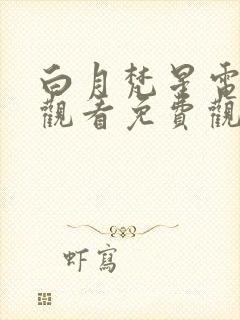 白月梵星電
觀看免費觀
虾寫